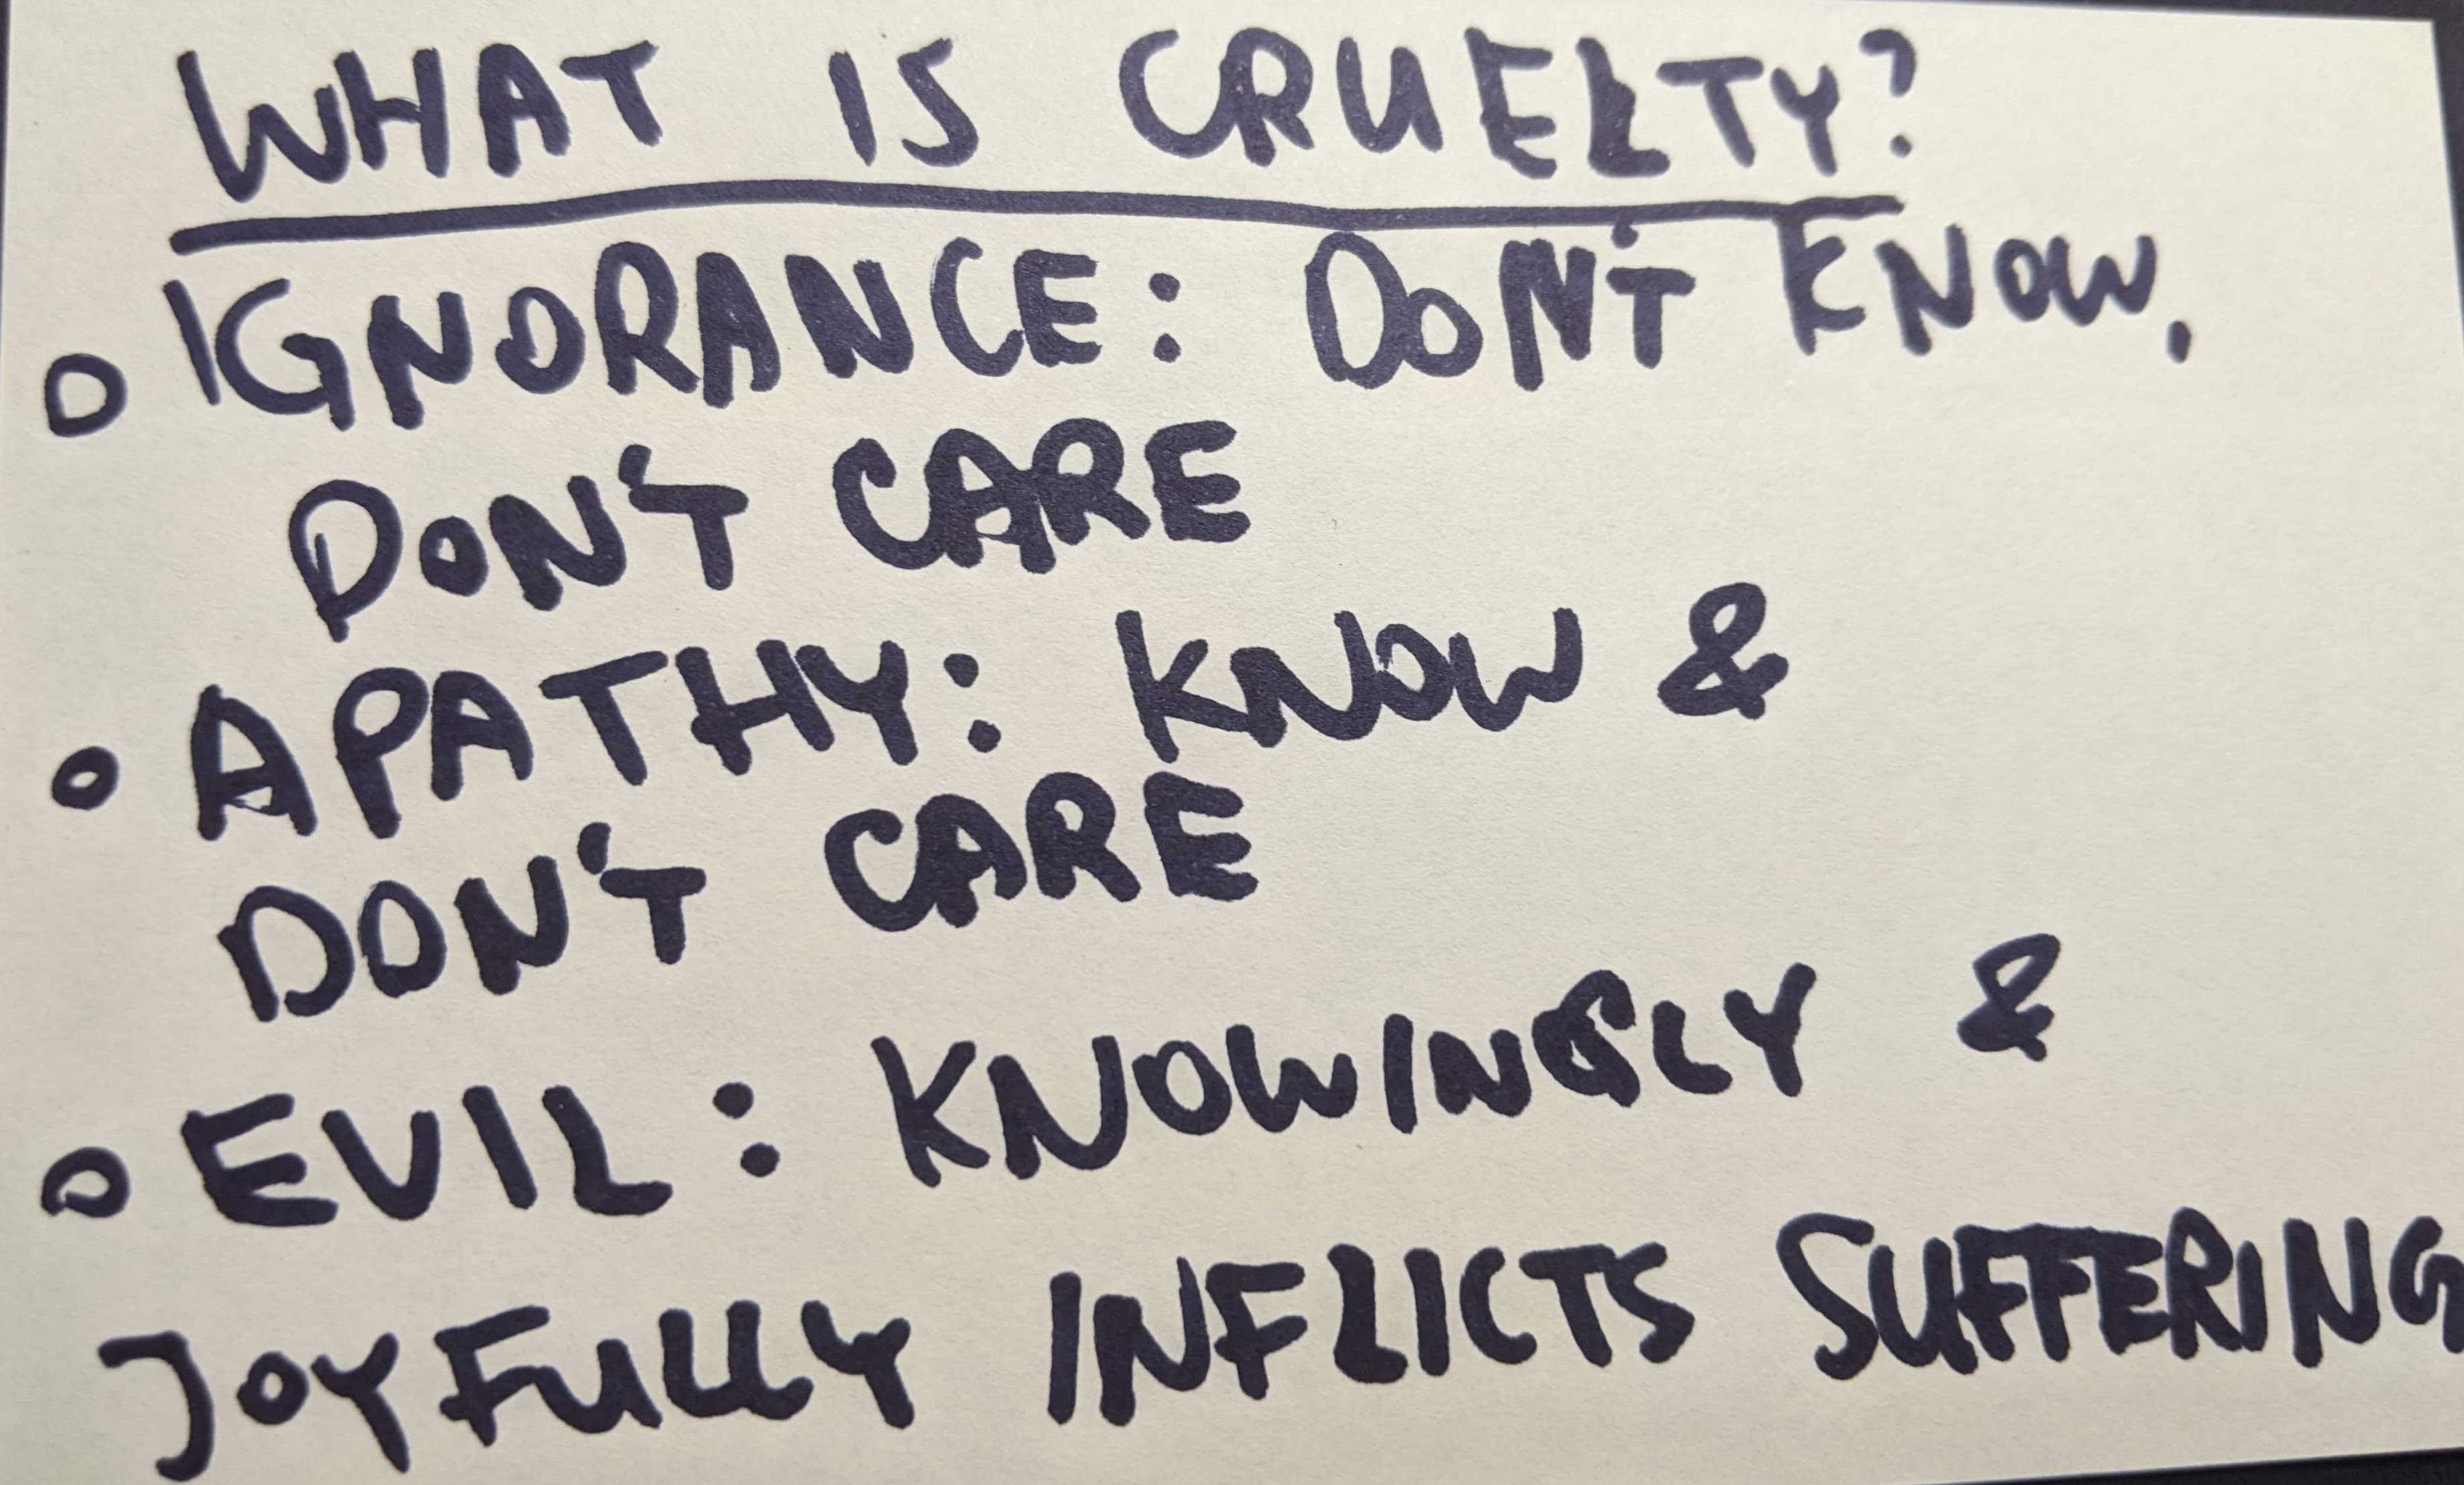 WHAT IS CRUELTY?
o IGNORANCE: DON'T KNOW.
DON'T CARE
o APATHY: KNOW &
DON'T CARE
o EVIL: KNOWINGLY &
JOYFULLY INFLICTS SUFFERING